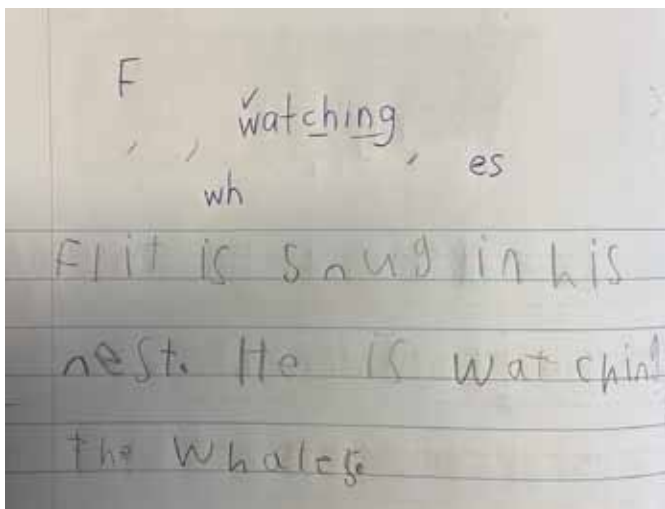 F
watching
es
wh
Flit is snug in his
nest. He is watching
the whales.